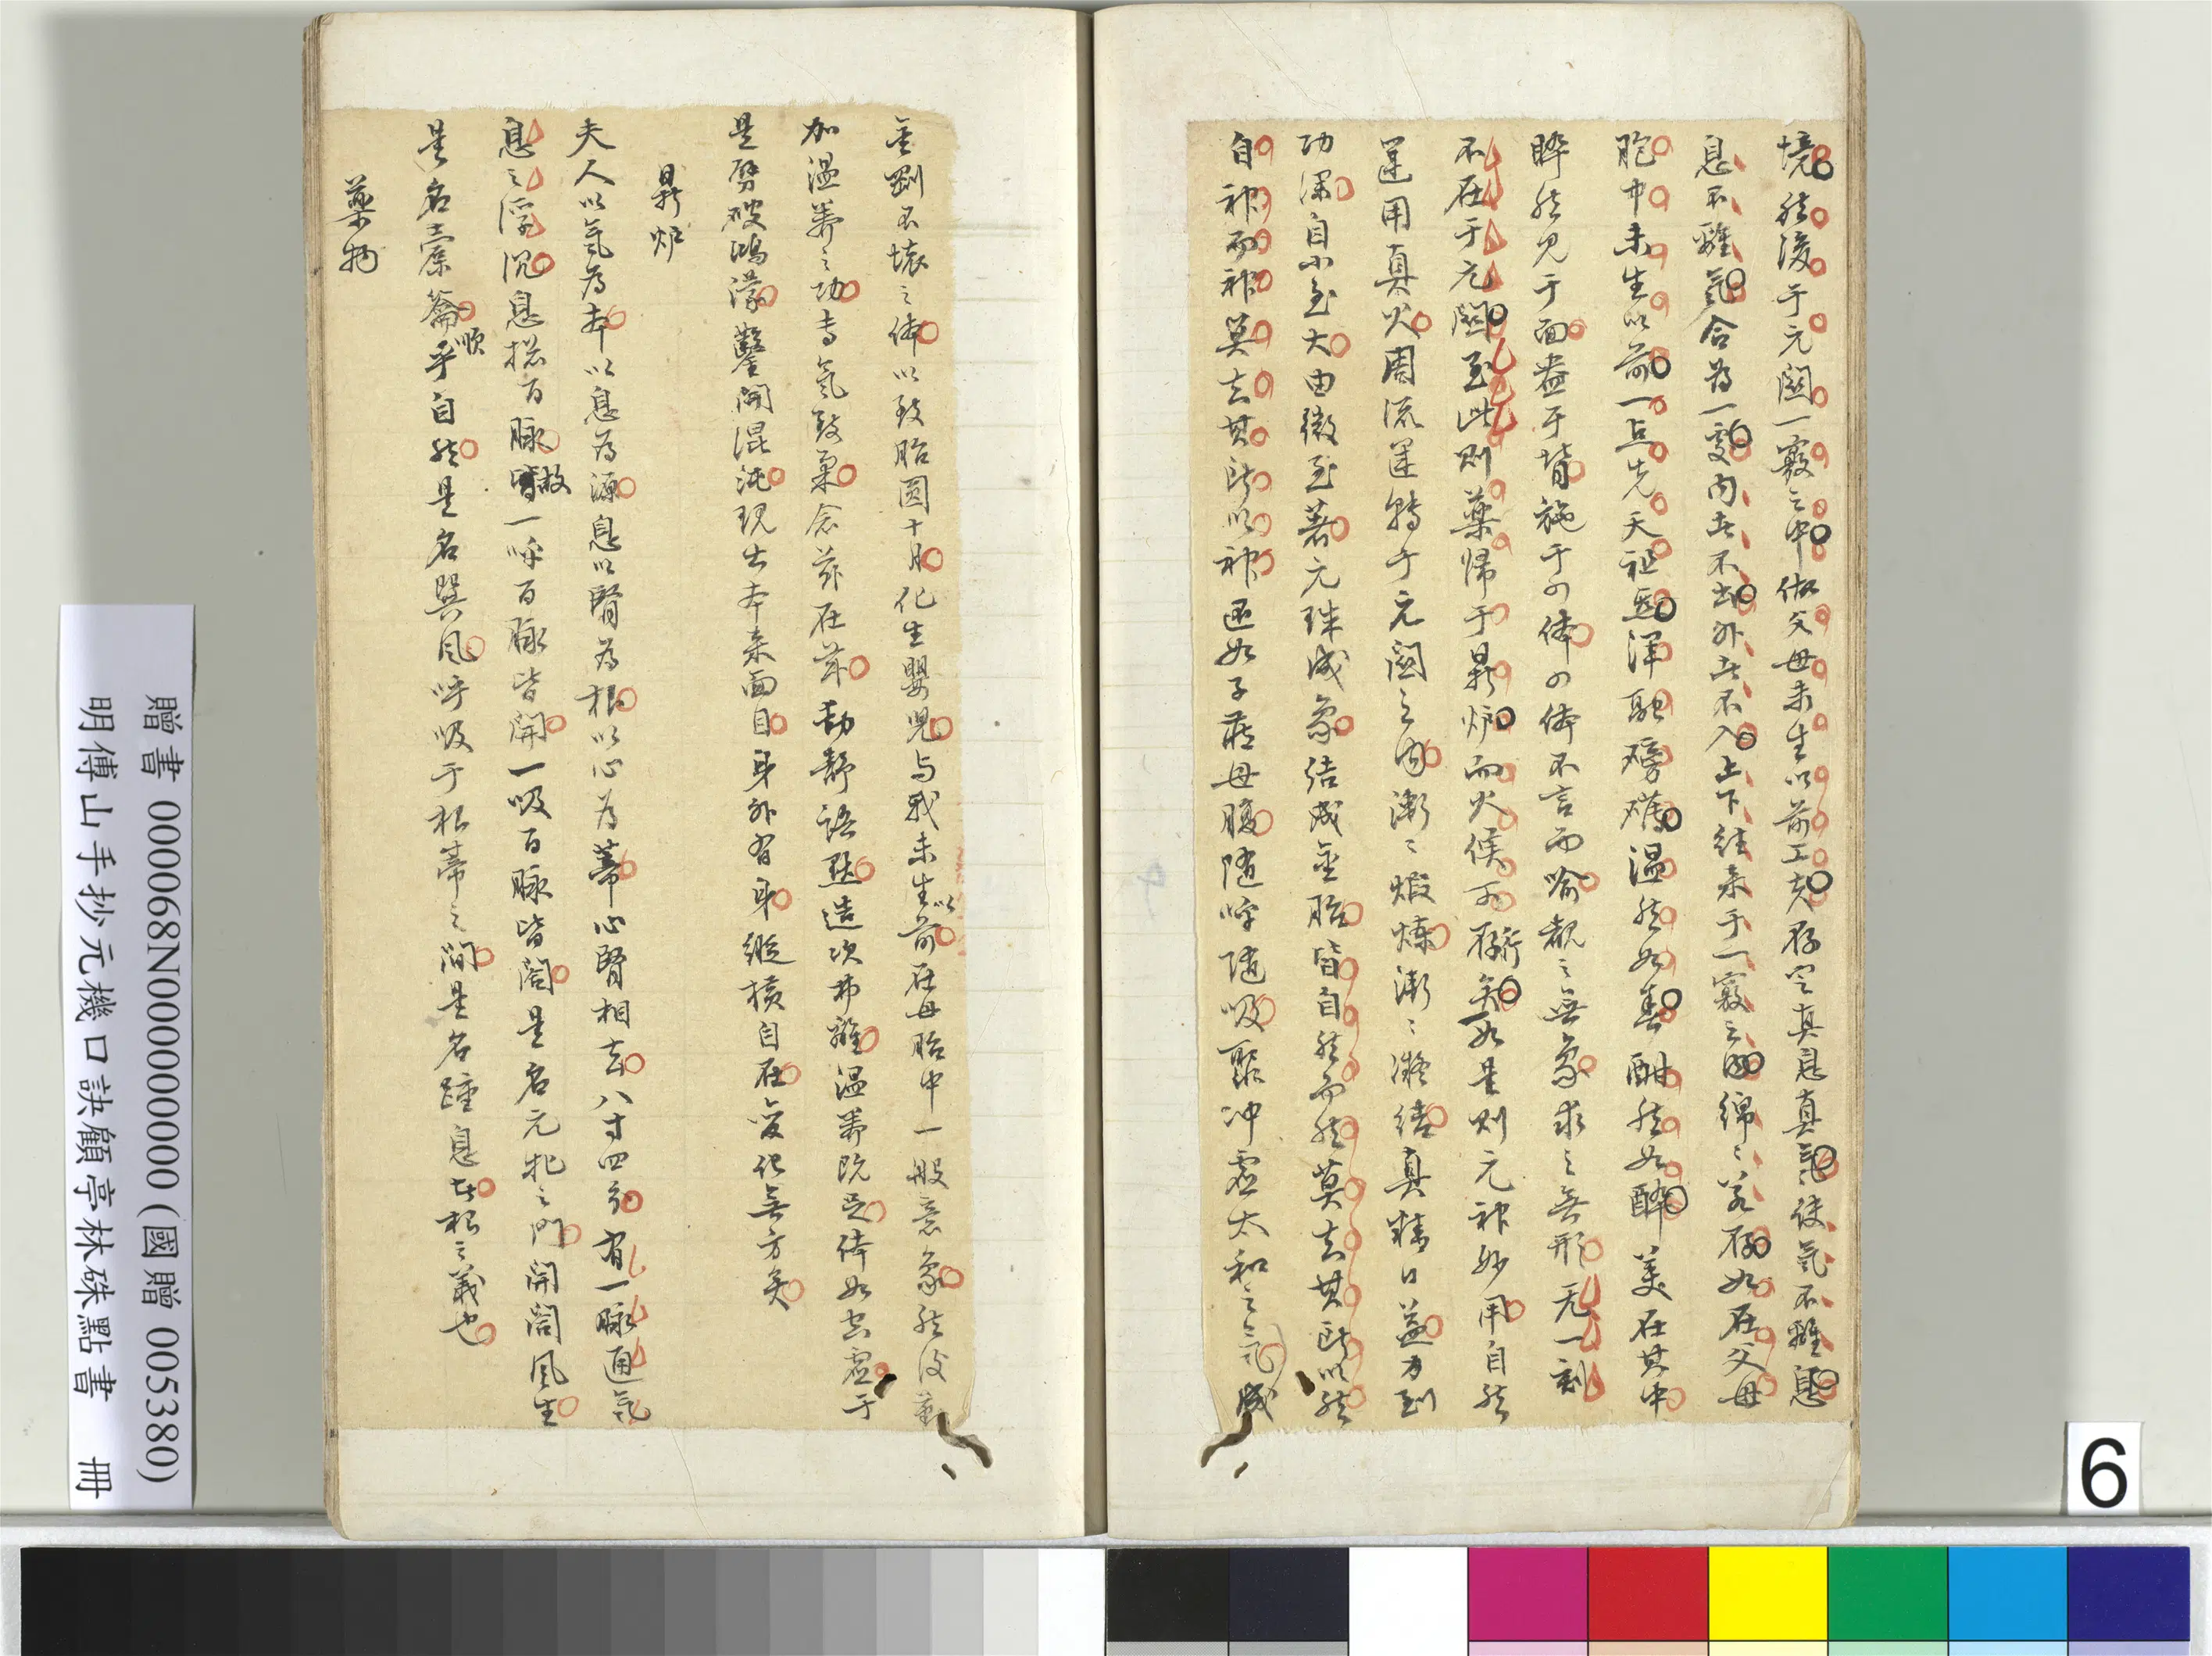 境然後于元關一竅之中做父母未生以前工夫存空真息真氣使氣不離息
息不離氣合為一處內者不出外者不入上下往來于一竅之內綿〻若存如在父母
胞中未生以前一点先天祖炁渾融磅礴温然如春酣然如醉美在其中
睟然见于面盎于背施于四体四体不言而喻覩之無象求之無形无一刻
不在于元關至此則藥歸于鼎炉而火候可行矣如是則元神妙用自然
運用真火周流運轉于元關之内漸〻煅煉漸〻凝结真精日益力到
功深自小至大由微至著元珠成象结成金胎皆自然而然莫知其所以然
自神而神莫知其所以神逐如子在母腹隨呼隨吸聚冲虛太和之氣成
金剛不壞之体以致胎圆十月化生嬰兒与我未生以前在母胎中一般意象然後
加温养之功专氣致柔念兹在兹動静語默造次弗離温养既足体如太虛于
是劈破鴻濛鑿開混沌現出本来面目身外有身縱横自在变化無方矣
鼎炉
夫人以氣為本以息為源息以腎為根以心為蒂心腎相去八寸四分有一脉通氣
息之浮沉息揔百脉故一呼百脉皆開一吸百脉皆闔是名元牝之門開闔風生
是名橐籥順乎自然是名巽風呼吸于根蒂之間是名踵息者根之義也
藥物
贈書 000068N000000000 (國贈 005380)
明傅山手抄元機口訣顧亭林硃點書 冊
6